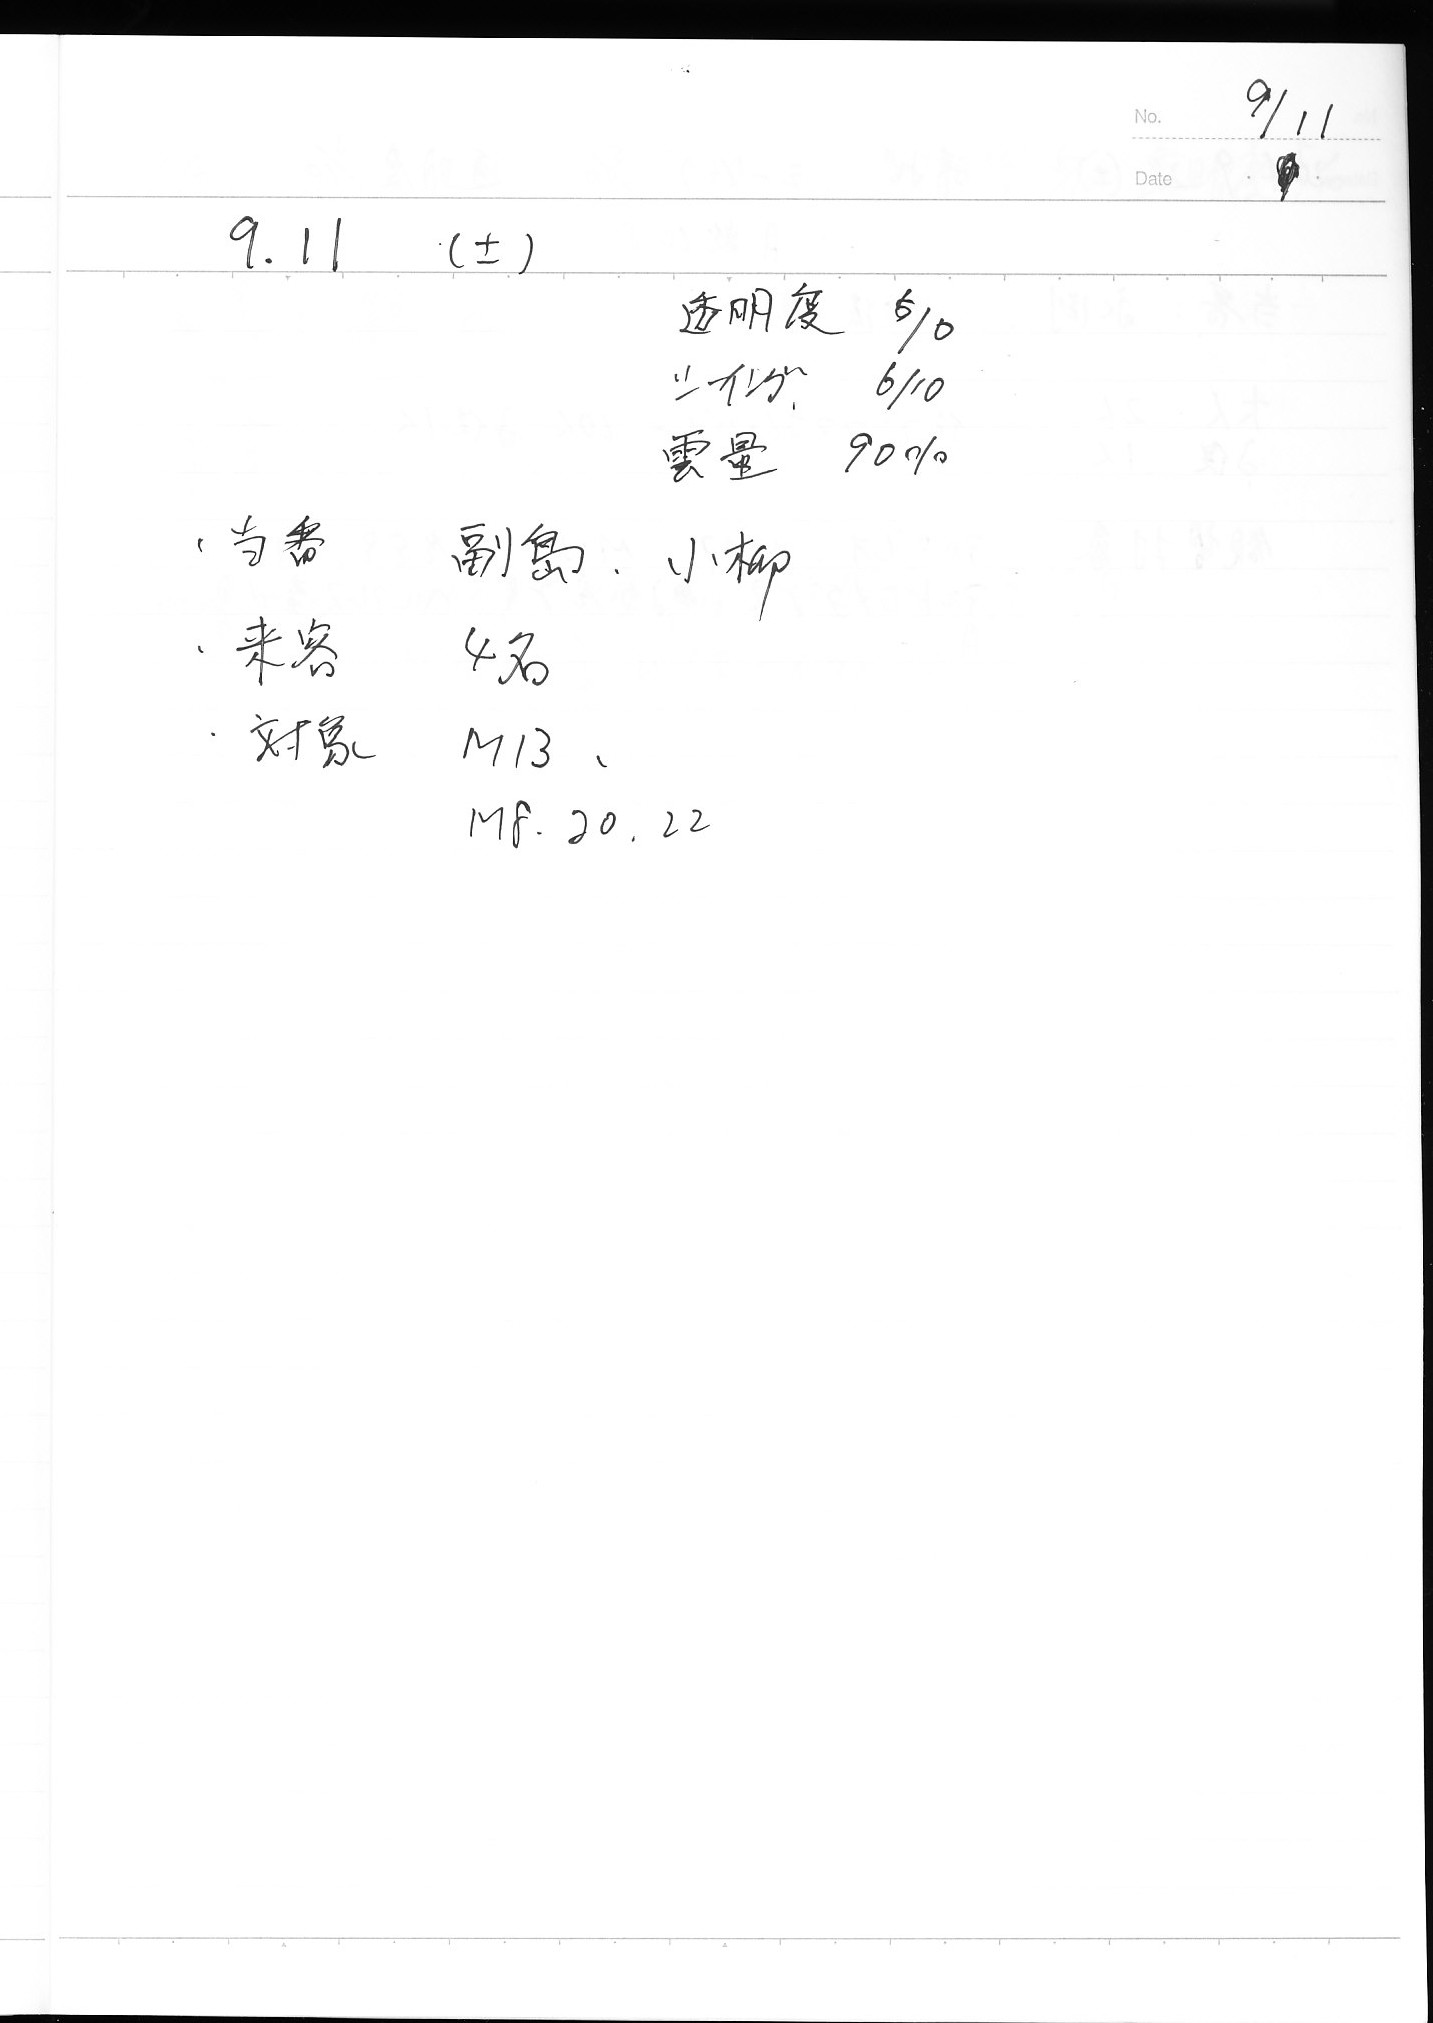 No. 9/11
Date
9.11 (土)
透明度 5/10
シイング 6/10
雲量 90%
・当番 副島、小柳
・来客 4名
・対象 M13、
M8. 20. 22